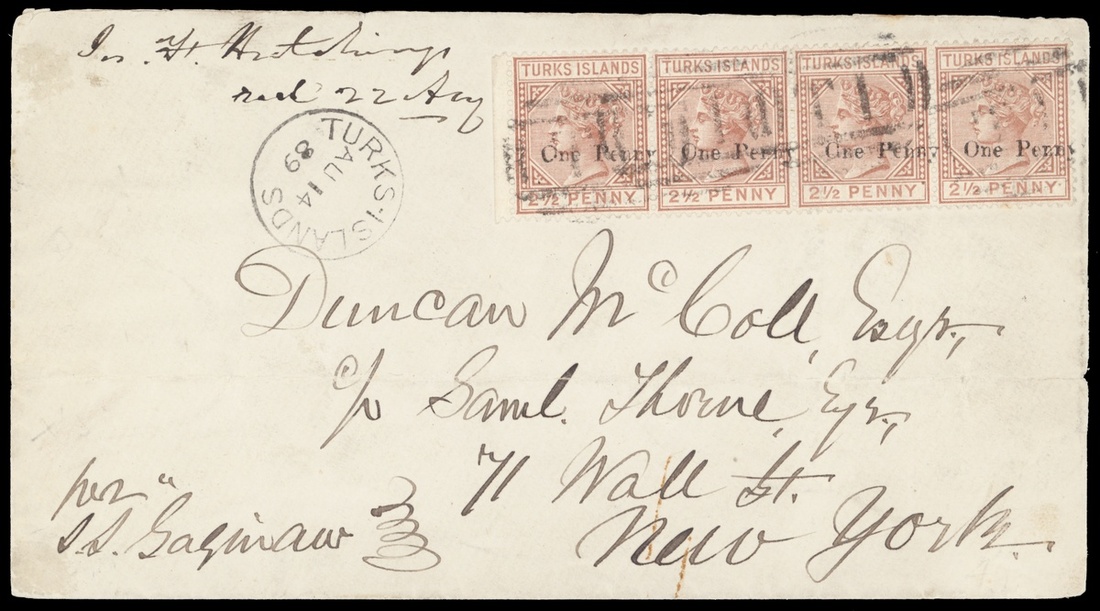 Jas. H. Hutchings
recd 22 Aug
TURKS ISLANDS TURKS ISLANDS TURKS ISLANDS TURKS ISLANDS
One Penny One Penny One Penny One Penny
2½ PENNY 2½ PENNY 2½ PENNY 2½ PENNY
TURKS-ISLANDS
AU 14
89
Duncan McColl, Esqr.,
c/o Saml. Thorne, Esqr.,
71 Wall St.
New York.
per "
S.S. Saginaw